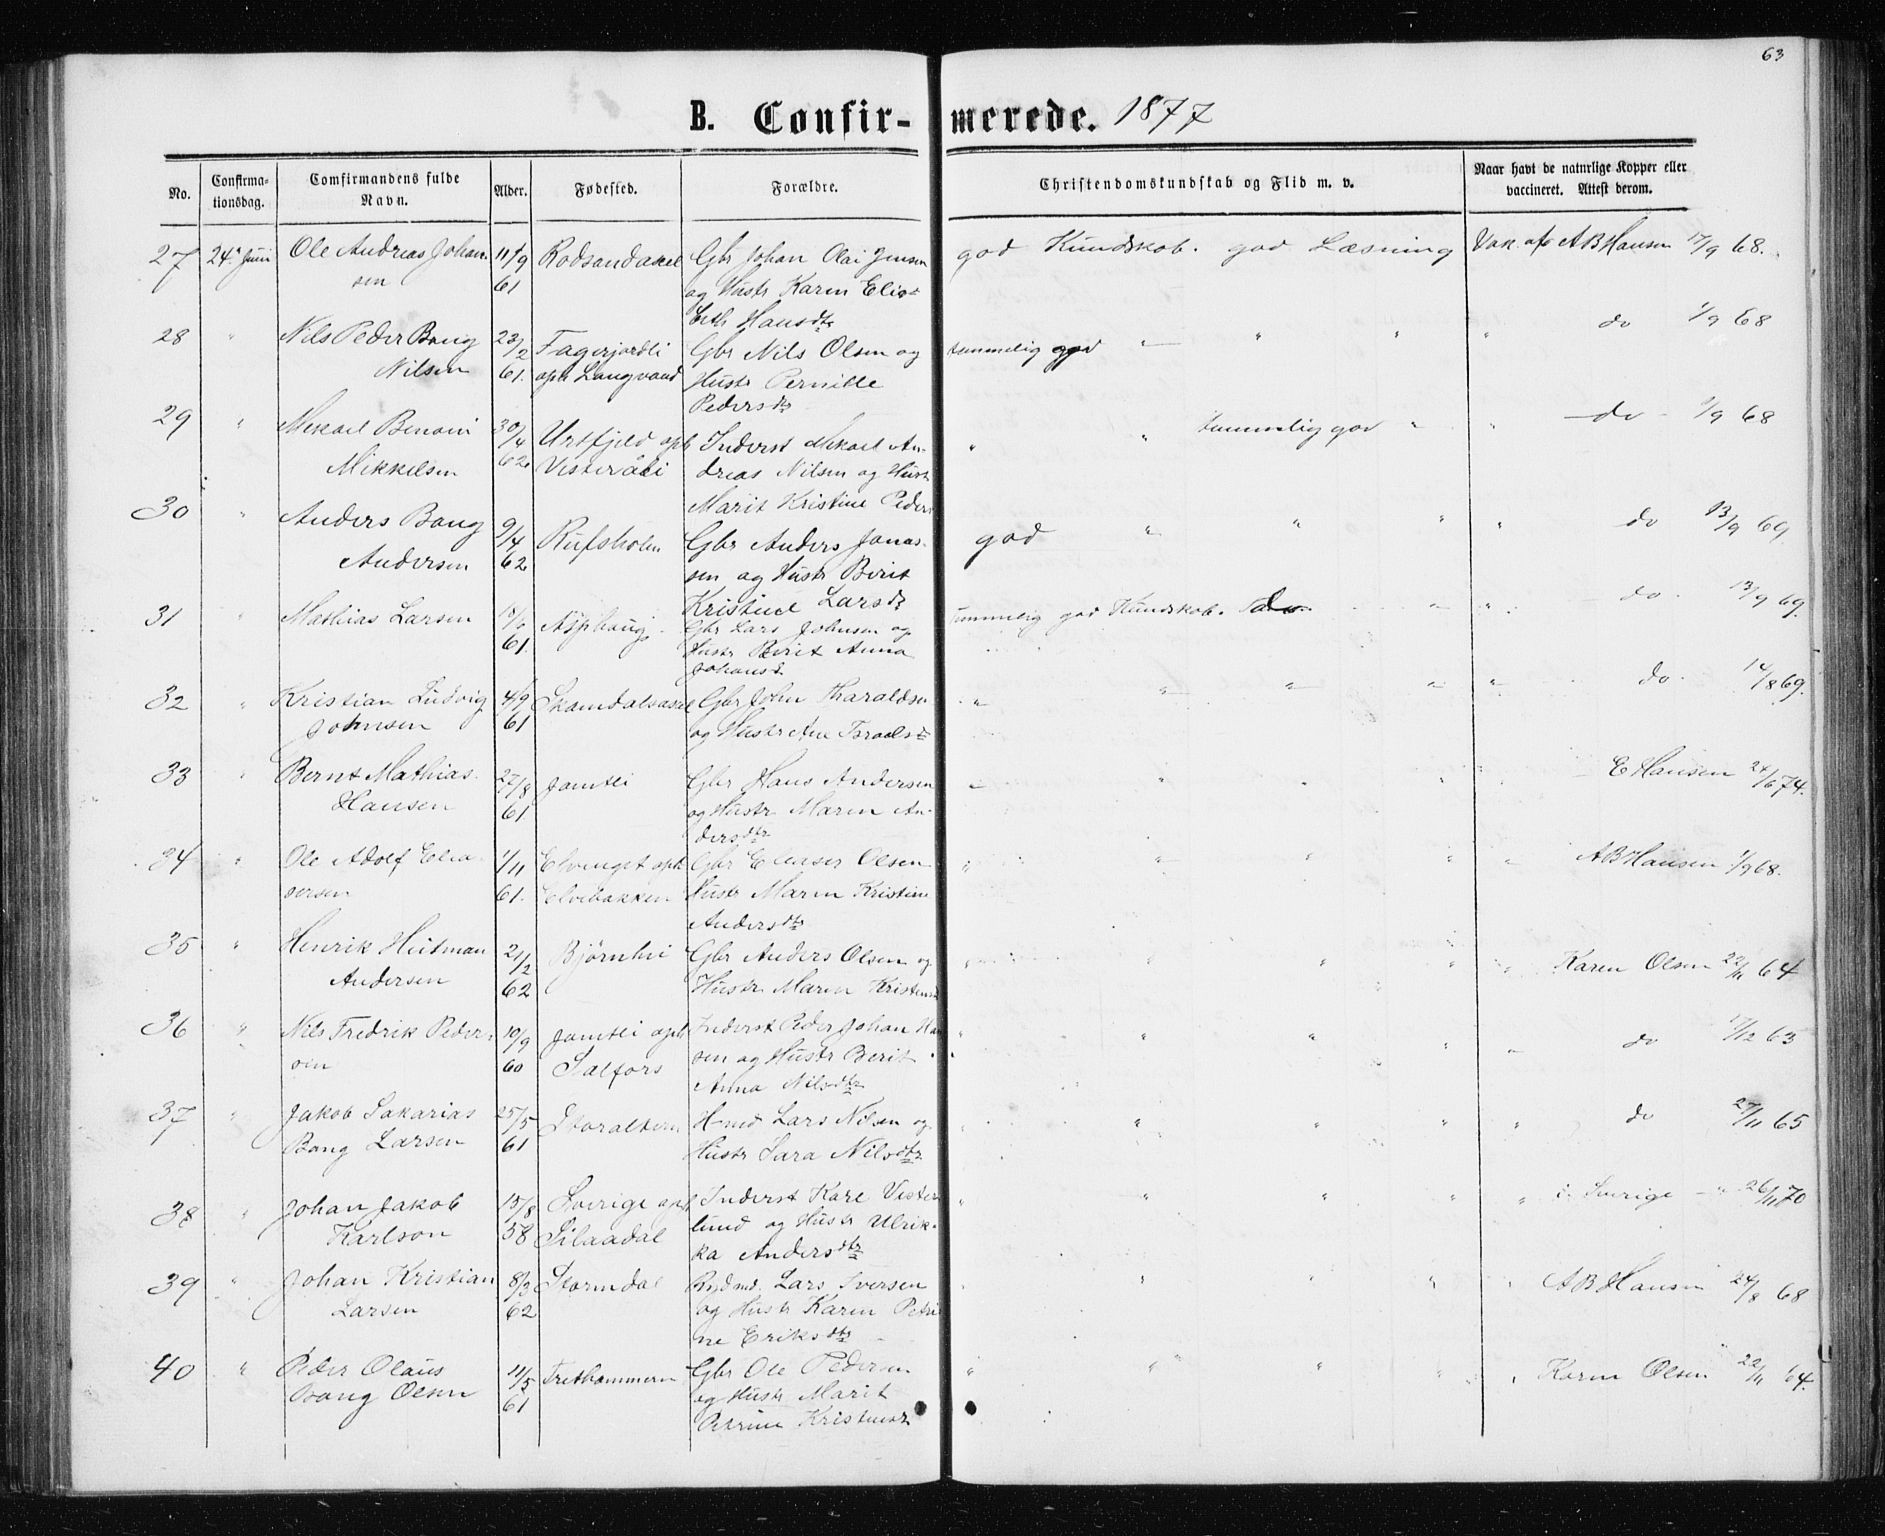 63
B. Confir- merede. 1877
No. Confirma- tionsdag. Comfirmandens fulde Navn. Alder. Fødested. Forældre. Christendomskundskab og Flid m. v. Naar havt de naturlige Kopper eller vaccineret. Attest derom.
27 24 Juni Ole Andreas Johan- 11/9 Gbr Johan Olai Jensen god Kundskab. god Læsning Vak. af AB Hansen 17/9 68.
sen 61 og Hustr Karen Elis=
beth Hansdtr
28 " Nils Peder Bang 23/2 Fagerjordli Gbr Nils Olsen og temmelig god " " " " do 1/9 68
Nilsen 61. oph Langvand Hustr Pernille
Pedersdtr
29 " Mikael Benoni 30/4 Urtfjeld oph Inderst Mikael An- " " temmelig god " " do 1/9 68
Mikkelsen 62 dreas Nilsen og Hustr
Marit Kristine Peders
30 " Anders Bang 9/4 Rufsholm Gbr Anders Jonas- god " " " " do 13/9 69
Andersen 62 sen og Hustr Berit
Kristine Larsdtr
31 " Mathias Larsen Asphaug Gbr Lars Johnsen og temmelig god Kundskab. " " do. 13/9 69.
61. Hustr Berit Anna
Johansd
32 " Kristian Ludvig 4/9 Gbr John Tharaldsen " " " " " do. 14/8 69.
Johnsen 61 og Hustr Ane Israelsdtr
33 " Bernt Mathias 27/8 Jamtli Gbr Hans Andersen " " " " E Hansen 24/6 74.
Hansen 61 og Hustr Maren An-
dersdtr
34 " Ole Adolf Elia- 1/11 Elvenget oph Gbr Eliaser Olsen " " " " " AB Hansen 1/9 68.
sersen 61. Elvebakken Hustr Maren Kristine
Andersdtr
35 " Henrik Hitman 21/2 Bjørnhi Gbr Anders Olsen og " " " " " Karen Olsen 22/11 64
Andersen 62 Hustr Maren Kristensd
36 " Nils Fredrik Peder- 10/9 Jamtli oph Inderst Peder Johan Han " " " " " do 17/12 63
sen 60 Salfors sen og Hustr Berit
Anna Nilsdtr
37 " Jakob Sakarias 25/5 Storaltern Lars Nilsen og " " " " " do 27/11 65
Bang Larsen 61 Hustr Sara Nilsdtr
38 " Johan Jakob 15/8 Sverige oph Inderst Karl Vester " " " " " i Sverige 26/11 70
Karlson 58 lund og Hustr Ulrik-
ka Andersdtr
39 " Johan Kristian 8/3 Stormdal Rydmd. Lars Iversen " " " " AB Hansen 24/8 68
Larsen 62 og Hustr Karen Petri
ne Eriksdtr
40 " Peder Olaus 11/5 Frethammern Gbr Ole Pedersen " " " " " Karen Olsen 22/11 64.
Bang Olsen 61 og Hustr Marit
Petrine Kristensdtr